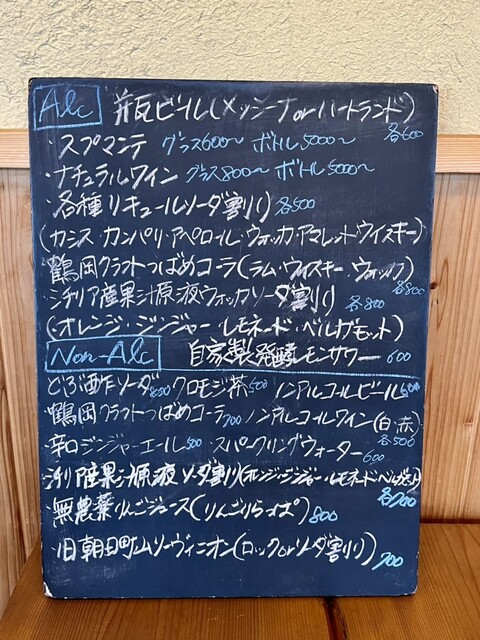 Alc 瓶ビール(メッシーナorハートランド) 各600
・スプマンテ グラス600〜 ボトル5000〜
・ナチュラルワイン グラス800〜 ボトル5000〜
・各種リキュールソーダ割り 各500
(カシス・カンパリ・アペロール・ウォッカ・アマレット・ウイスキー)
・鶴岡クラフトつばめコーラ(ラム・ウイスキー・ウォッカ) 各800
・シチリア産果汁原液ウォッカソーダ割り 各800
(・オレンジ・ジンジャー・レモネード・ベルガモット)
Non-Alc 自家製発酵レモンサワー 600
・どぶ酢ソーダ 800 クロモジ茶 500 ノンアルコールビール
・鶴岡クラフトつばめコーラ 700 ノンアルコールワイン(白・赤) 各500
・辛口ジンジャーエール 500 ・スパークリングウォーター 600
・シチリア産果汁原液ソーダ割り(オレンジ・ジンジャー・レモネード・ベルガモット) 各700
・無農薬りんごジュース(りんごりらっぱ) 800
・旧朝日町山ソーヴィニオン(ロックorソーダ割り) 700